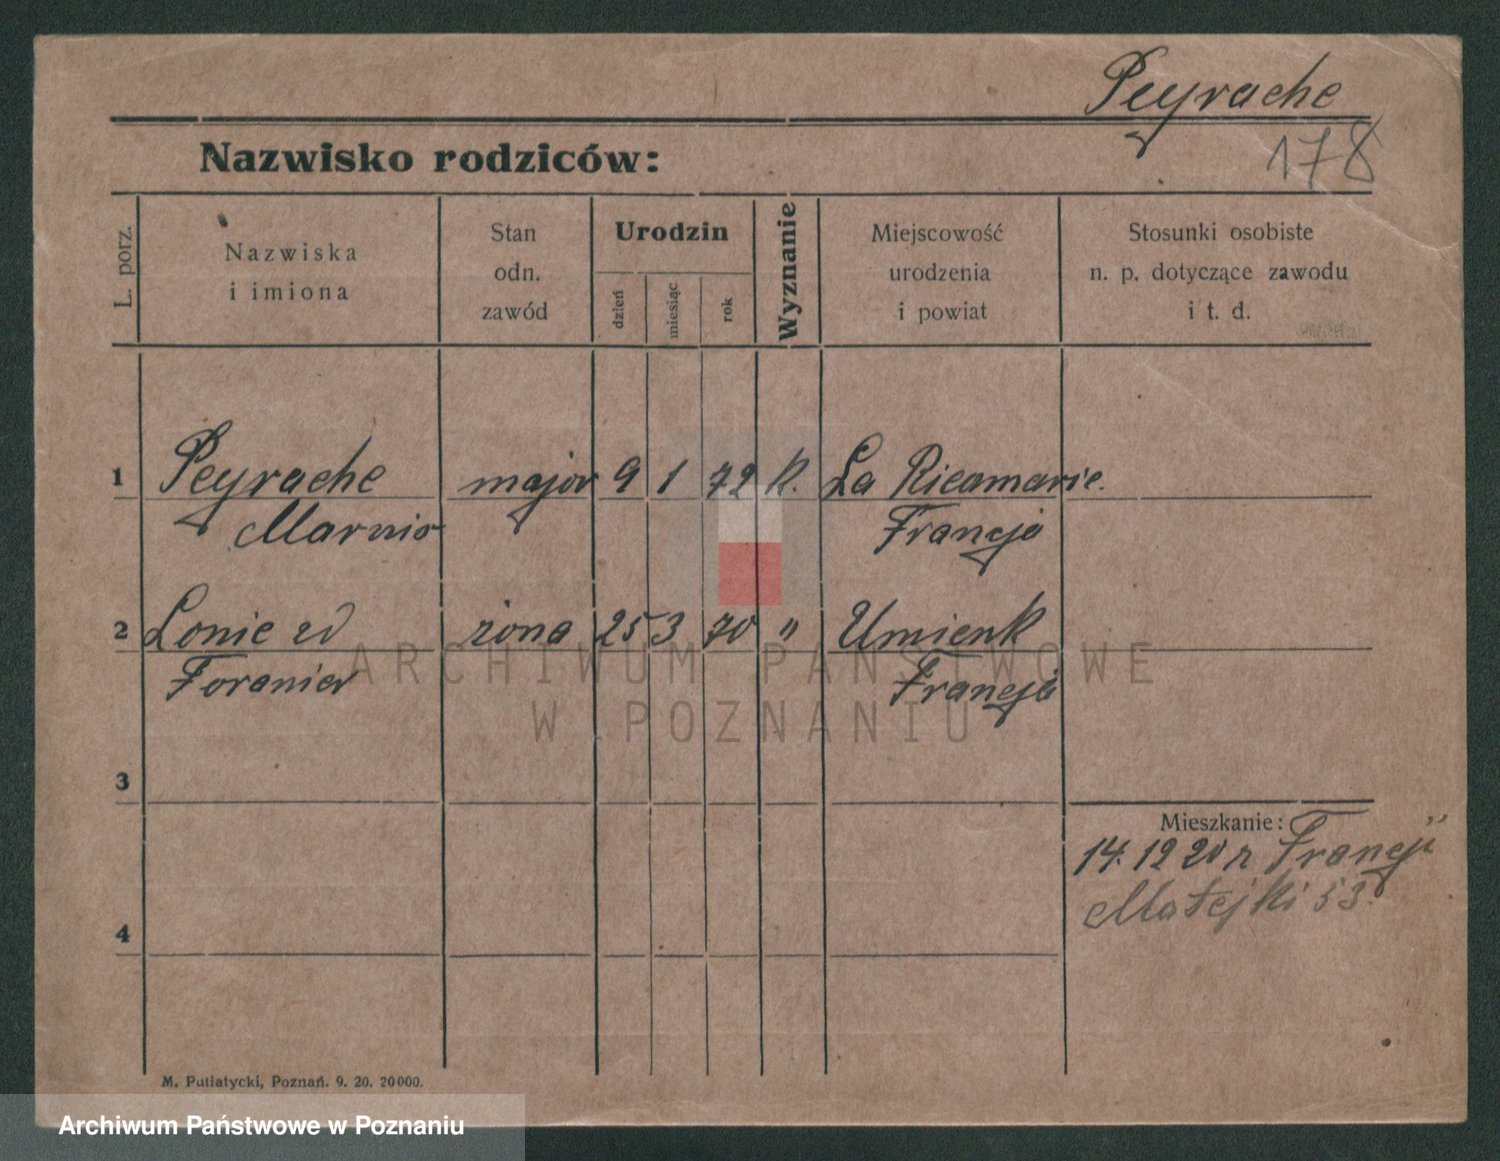 Peyrache
178
Nazwisko rodziców:
L. porz.
Nazwiska
i imiona
Stan
odn.
zawód
Urodzin
dzień
miesiąc
rok
Wyznanie
Miejscowość
urodzenia
i powiat
Stosunki osobiste
n. p. dotyczące zawodu
i t. d.
1 Peyrache major 9 1 72 k. La Ricamarie.
Francja
2 Lonie zd żona 25 3 70 " Umienk
Foranier Francja
3
4
Mieszkanie:
14. 12 20 z Francji
Matejki 53.
M. Putiatycki, Poznań. 9. 20. 20000.
ARCHIWUM PAŃSTWOWE
W POZNANIU
Archiwum Państwowe w Poznaniu